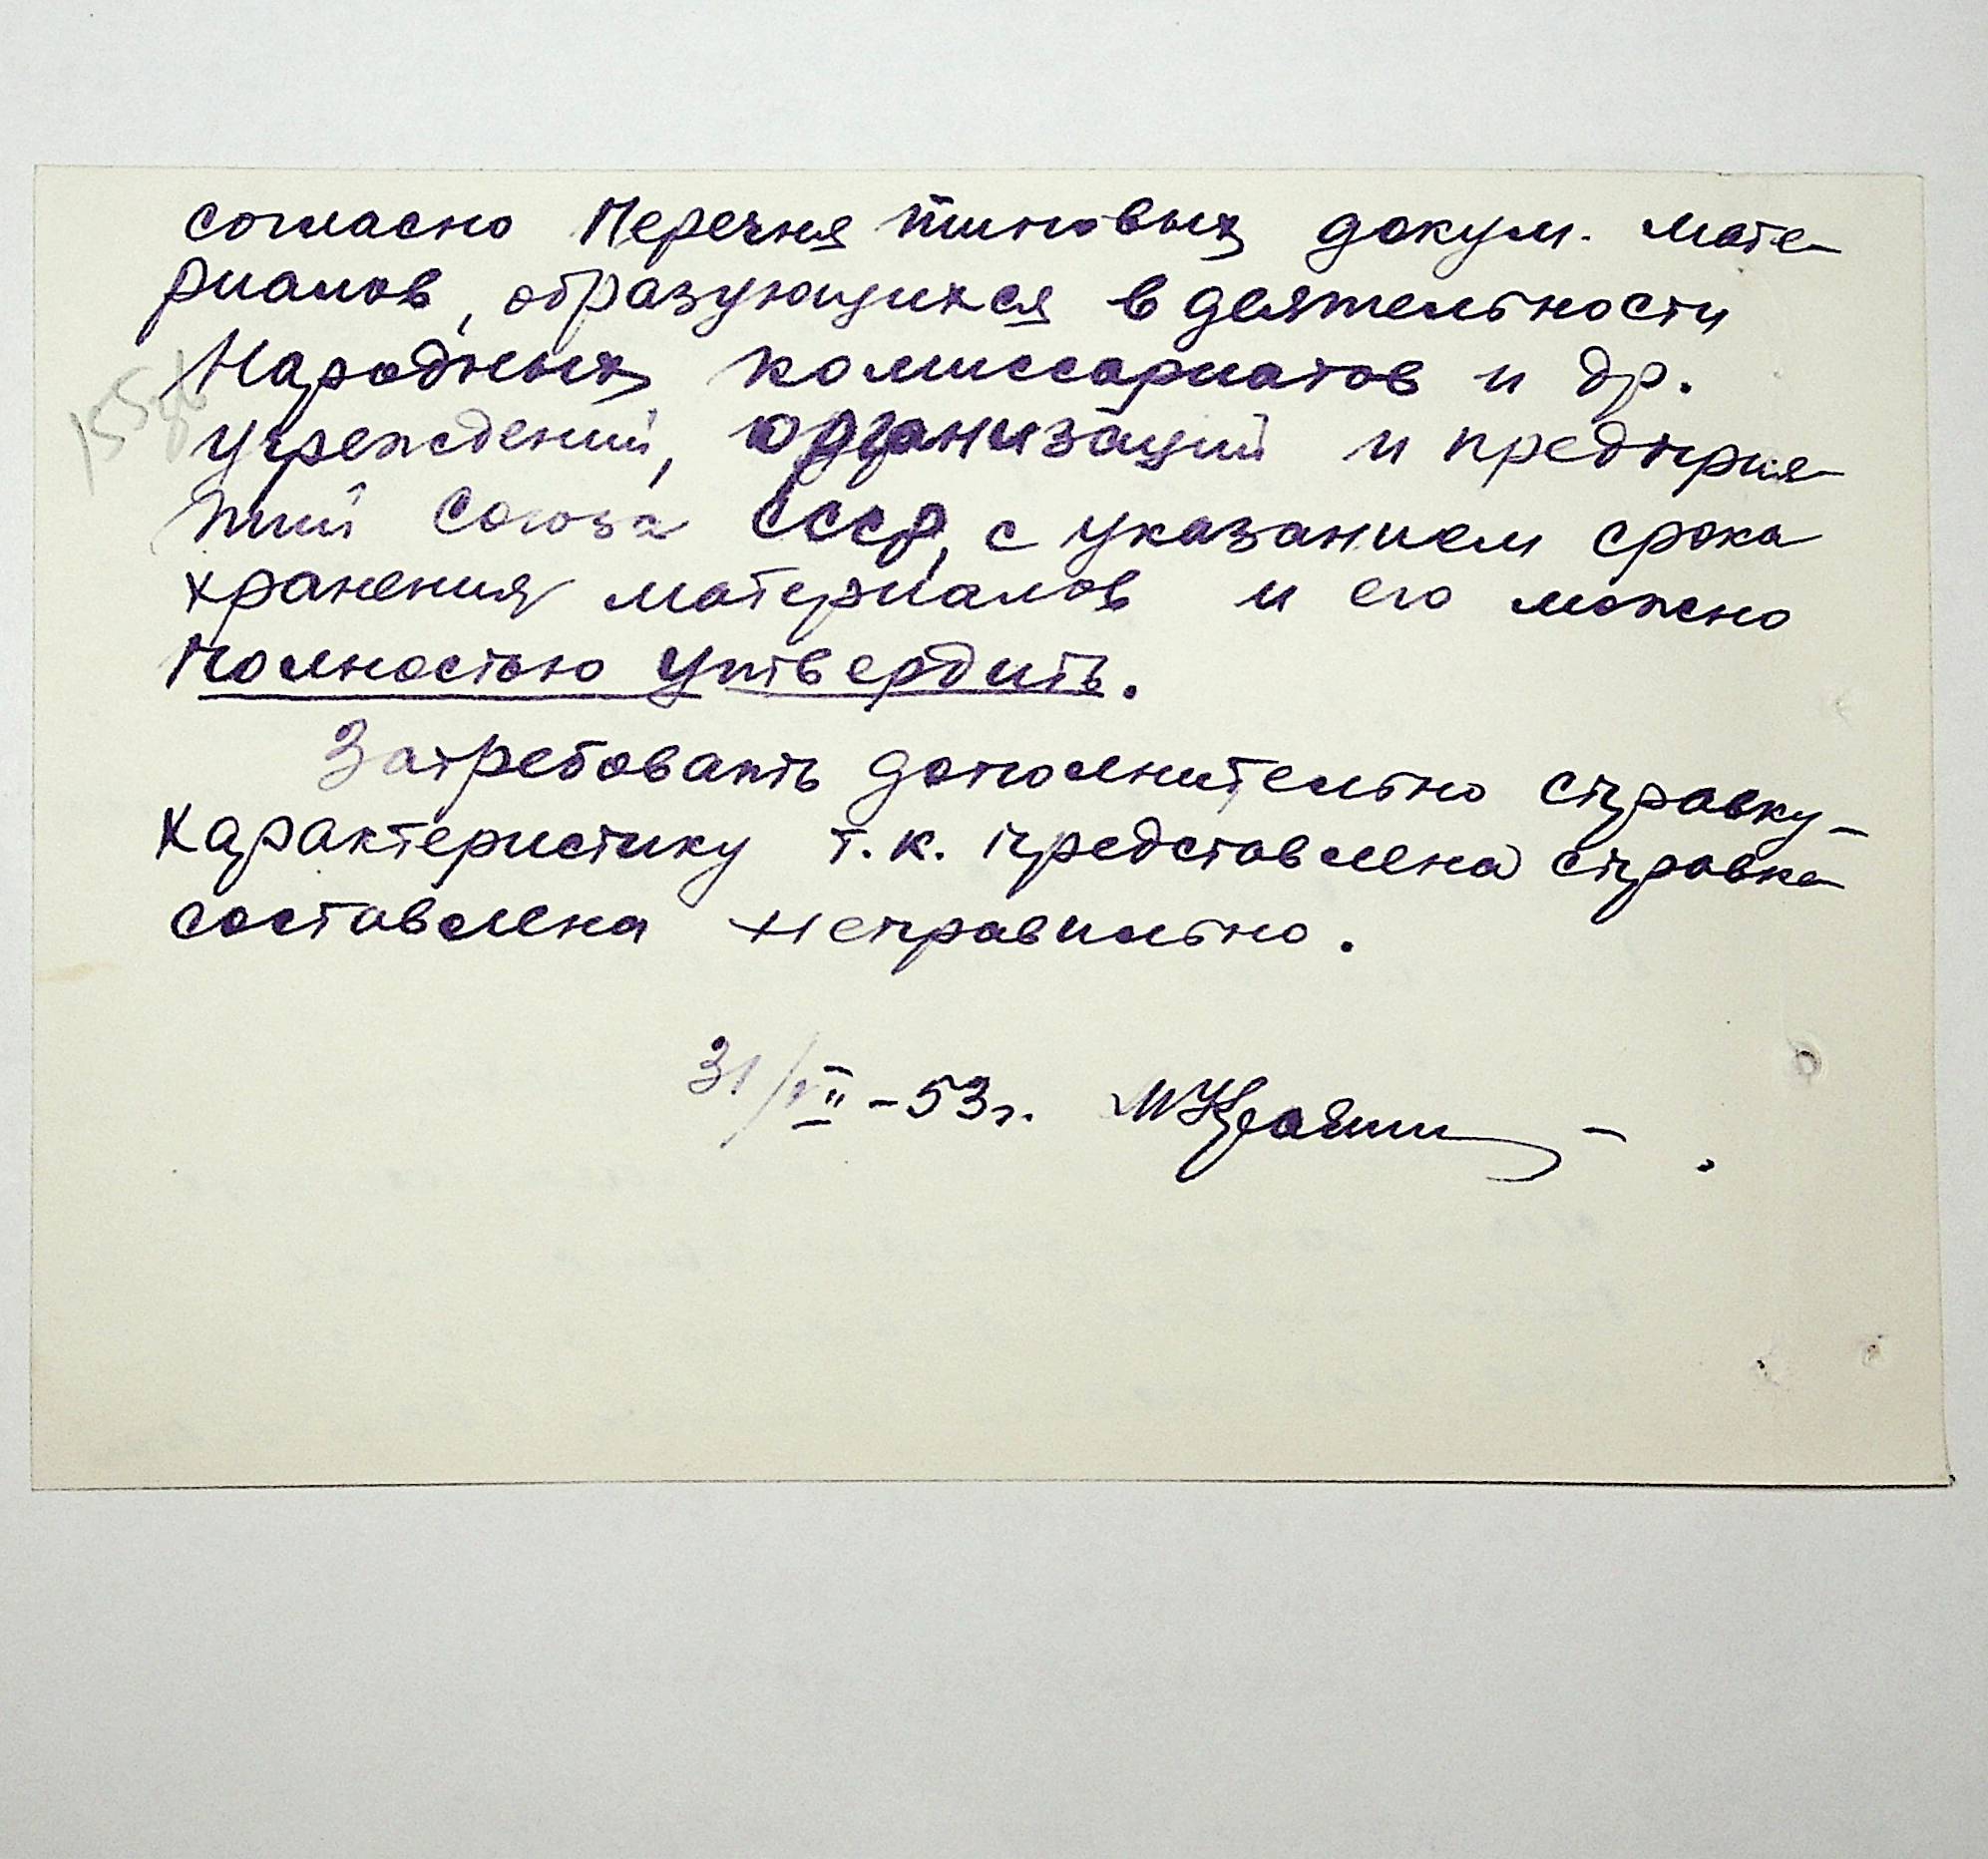 согласно Перечня типовых докум. мате-
риалов, образующихся в деятельности
Народных комиссариатов и др.
учреждений, организаций и предприя-
тий Союза СССР, с указанием срока
хранения материалов и его можно
полностью утвердить.
Затребовать дополнительно справку-
характеристику т.к. представлена справка
составлена неправильно.
31/VII-53г.
155об